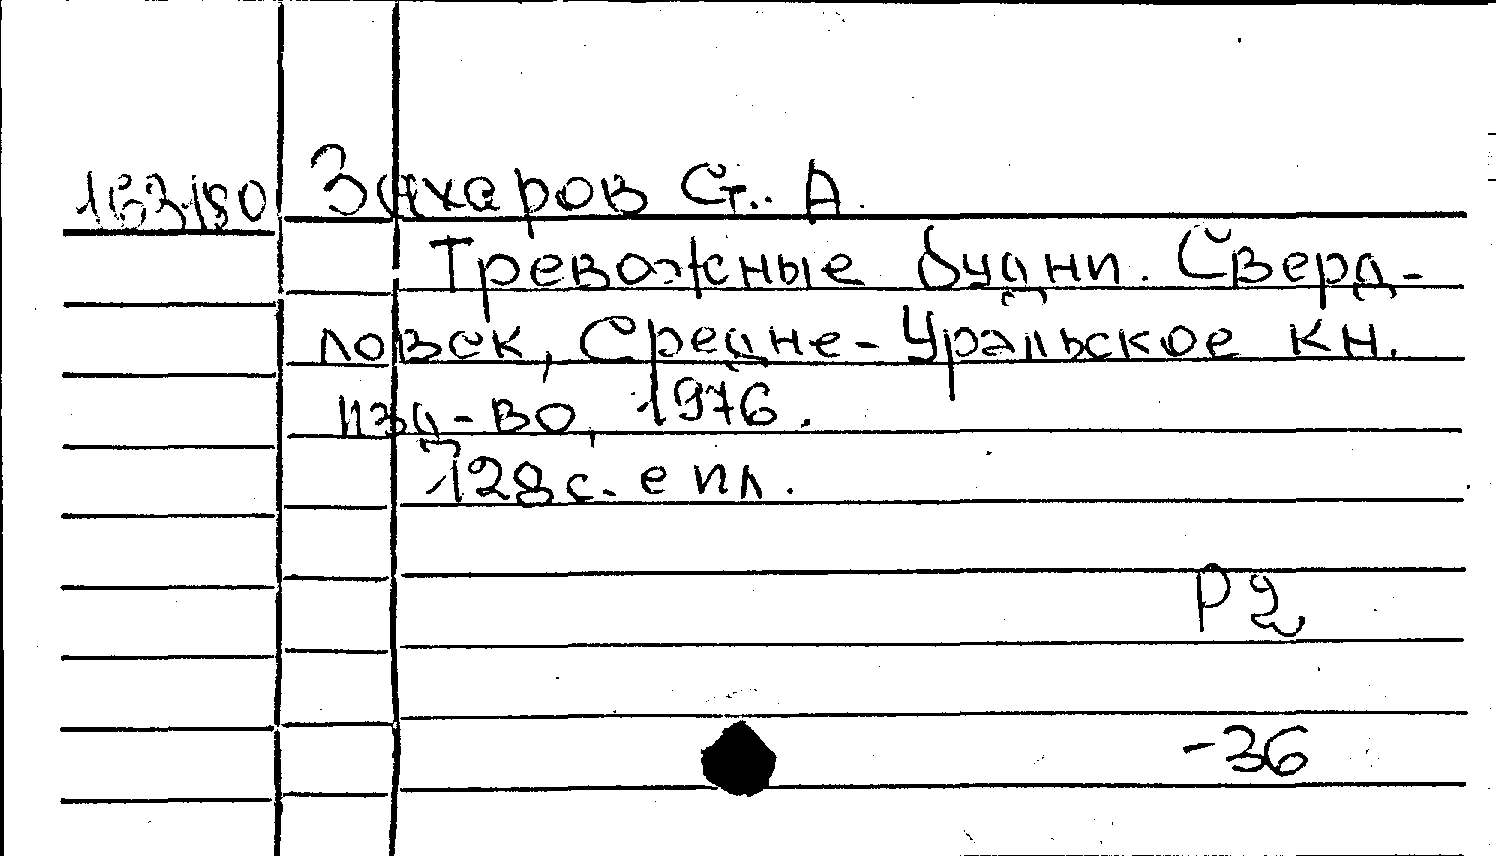 163180 Захаров Ст. А.
Тревожные будни. Сверд-
ловск, Средне-Уральское кн.
изд-во, 1976.
128 с. с ил.
Р2
-36